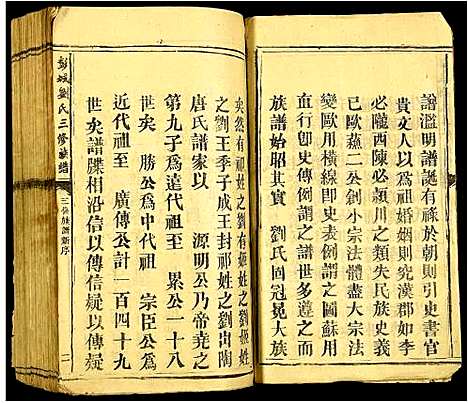 譜濫明譜誕有祿於朝則引史書官
貴文人以為祖婚姻則究漢郡如李
必隴西陳必潁川之類失民族史義
已歐蘇二公創小宗法體盡大宗法
變歐用橫線即史表例之圖蘇用
直行即史傳例謂之譜世多遵之而
族譜始昭其實 劉氏固冠冕大族
矣然有祁姓之劉有姬姓之劉姬姓
之劉王季子成王封祁姓之劉出陶
唐氏譜家以 源明公乃帝堯之
第九子為遠代祖至 累公一十八
世矣 勝公為中代祖 宗臣公為
近代祖至 廣傳公計一百四十九
世矣譜牒相沿信以傳信疑以傳疑
彭城劉氏三修族譜
三修族譜新序
二